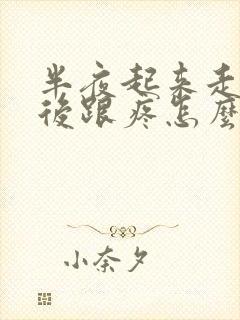 半夜起来走
後跟疼怎麼
小奈夕